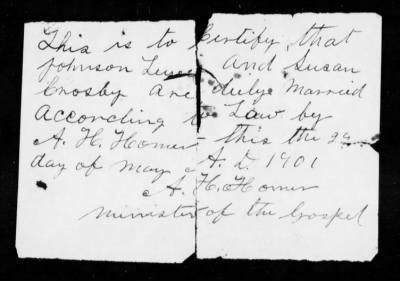 This is to Certify that
Johnson Lewis And Susan
Crosby Are dulye Married
According to Law by
A. H. Homer this the
day of May A. D. 1901
A. H. Homer
minister of the Gospel